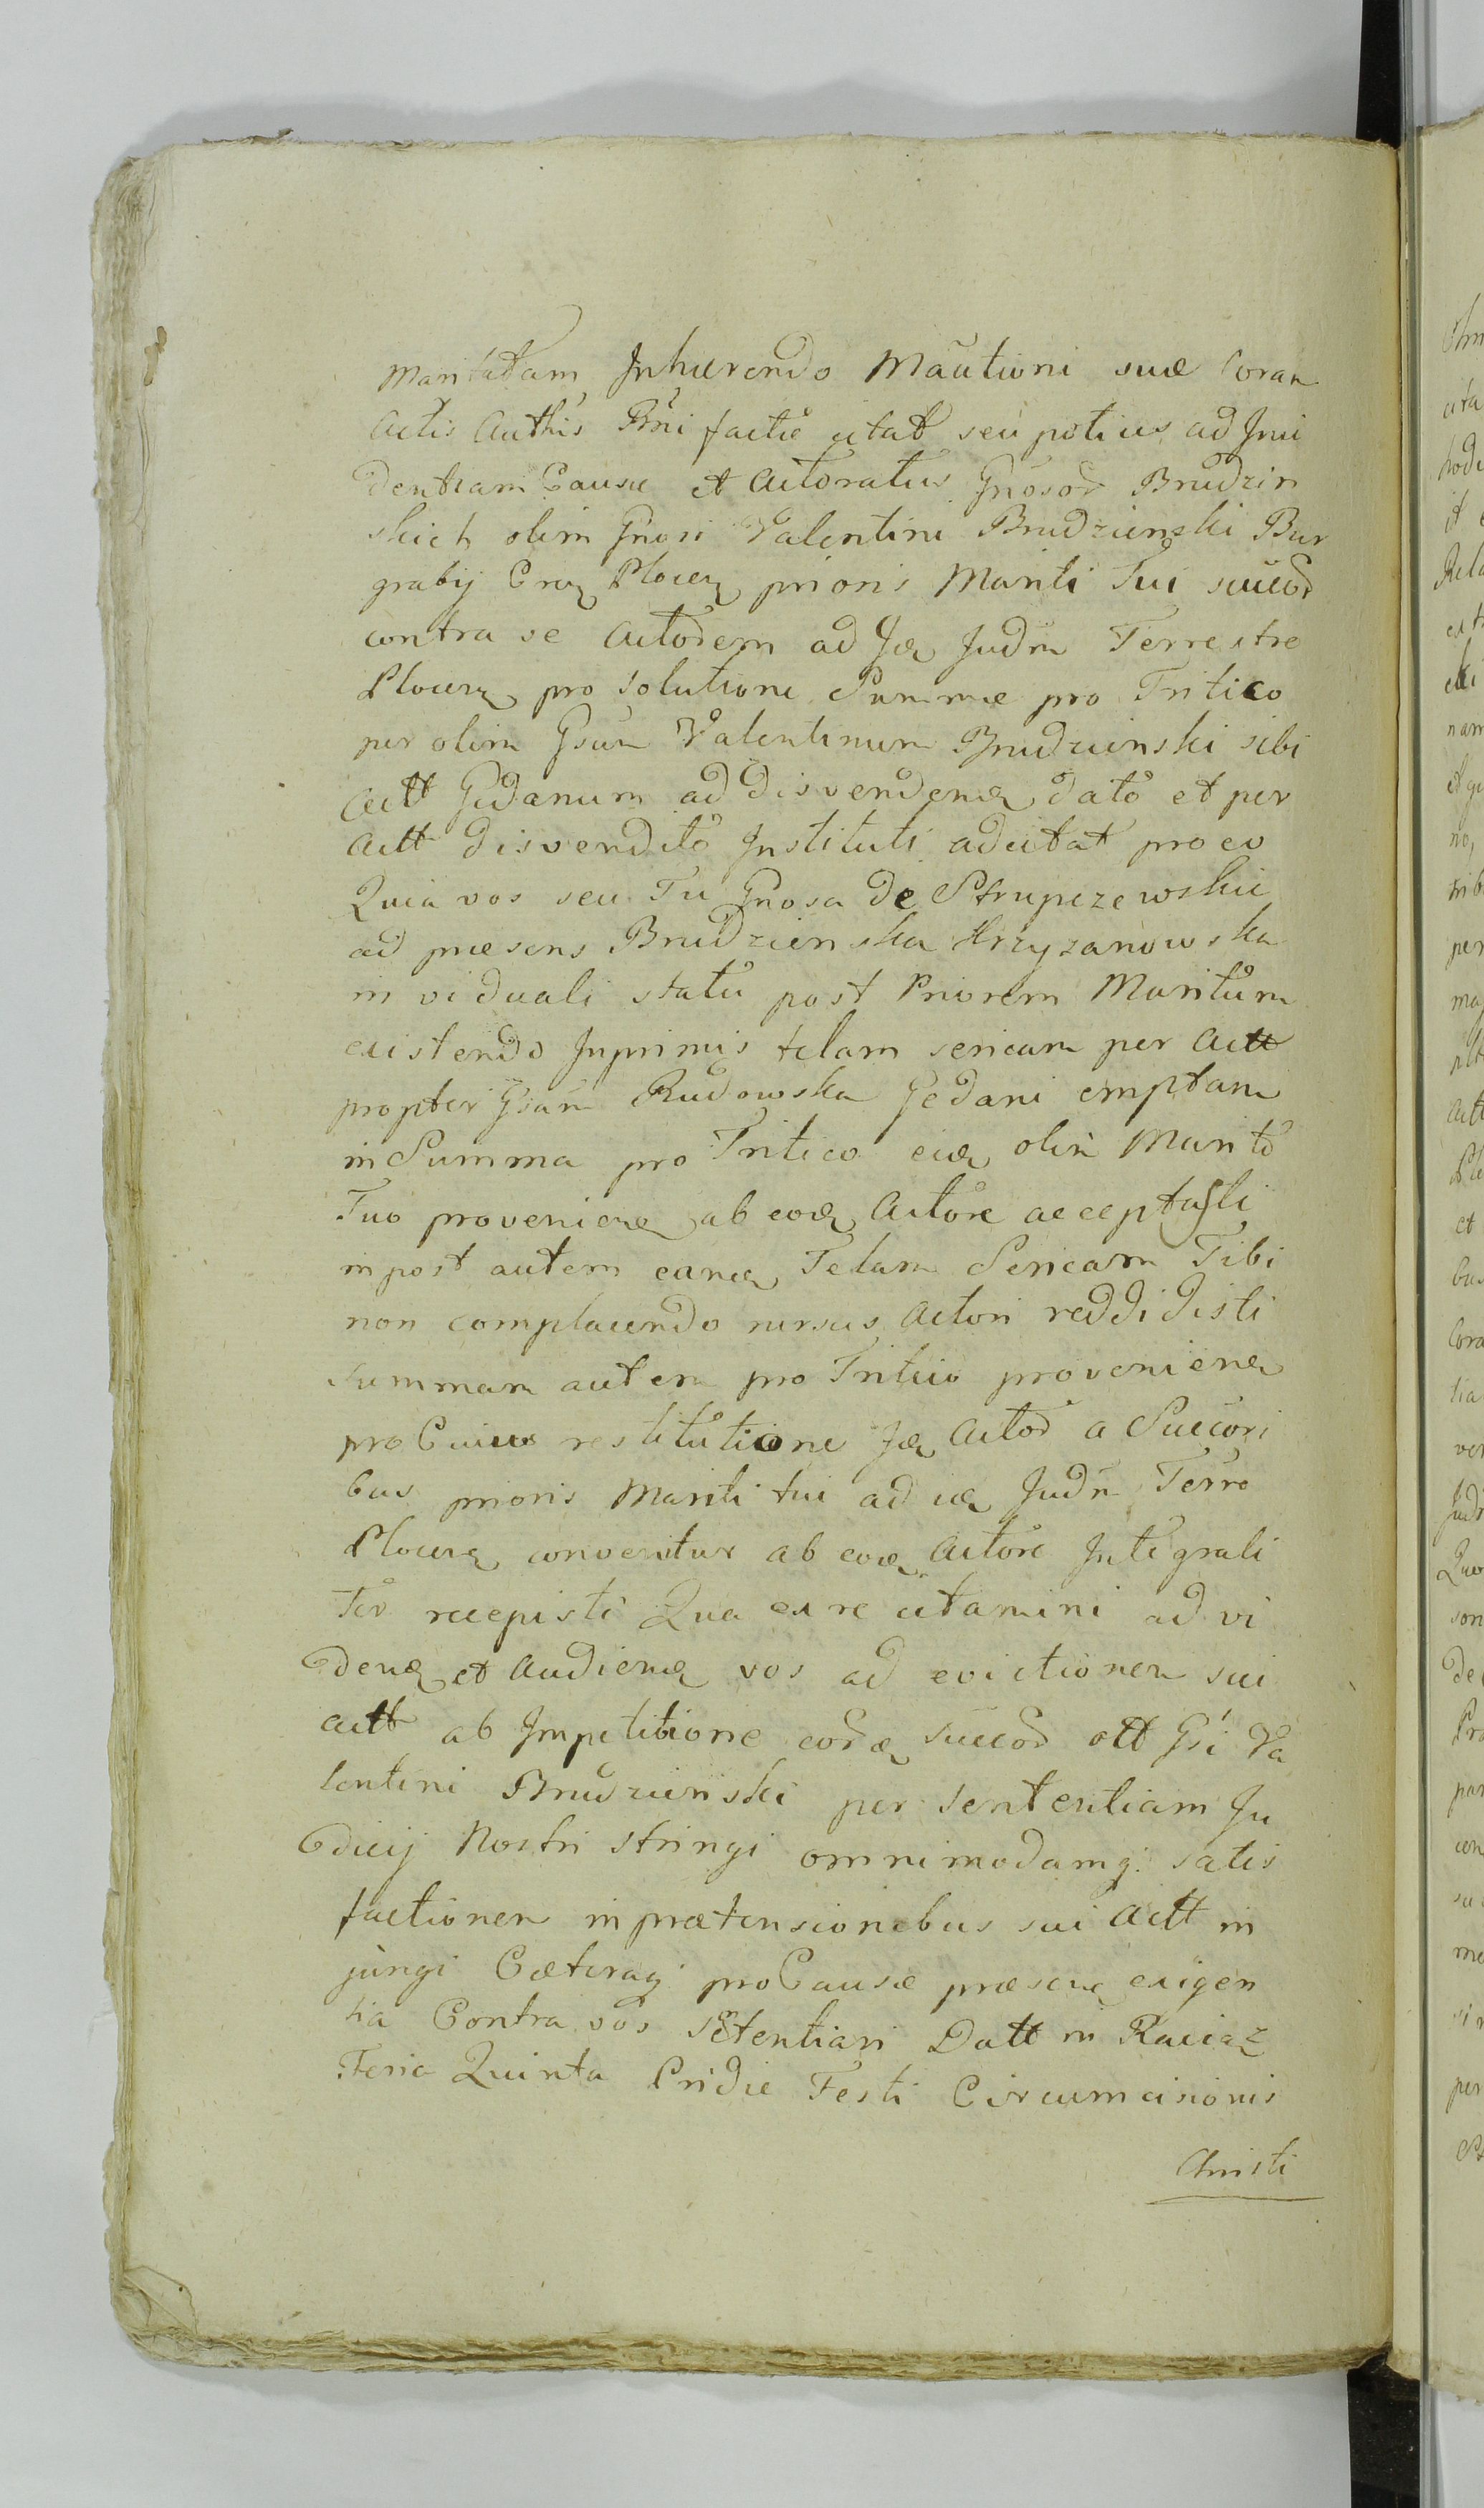 Maritatam Inhærendo Maũtioni suæ Coram
Actis Authĩs Prñi factæ citat seu potius ad Inci
dentiam Causæ et Actoratus Gnosor Brudzin
skich olim Gnosi Valentini Brudzienski Bur
graby Crae Plocen prioris Mariti Tui succor
contra se Actorem ad Ja Judm Terrestre
Plocen pro solutione Summæ pro Tritico
per olim Gsum Valentinum Brudzienski sibi
Actt Gedanum ad disvenden dato et per
Actt disvendito Instituti adcitat pro eo
Quia vos seu Tu Gnosa de Strupczewskie
ad præsens Brudzienska Krzyzanowska
in viduali statu post Priorem Maritum
existendo Inprimis telam sericam per Actt
propter Gsam Rudowska Gedani emptam
in Summa pro Tritico eid olim Marito
Tuo provenien ab eod Actore acceptasti
inpost autem eand Telam Sericam Tibi
non complacendo rursus Actori reddidisti
Summam autem pro Tritico provenien
pro Cuius restitutione Ja Actor a Succori
bus prioris Mariti tui ad id Judm Terre
Plocen convenitur ab eod Actore Integrali
Ter recepisti Qua ex re citamini ad vi
dend et Audiend vos ad evictionem sui
Actt ab Impetitione eord Succor ott Gsi Va
lentini Brudzienski per sententiam Ju
dicij Nostri stringi omnimodamq: satis
factionem in prætensionibus sui Actt in
jungi Cæteraq: pro Causæ præsen exigen
tia Contra vos sẽtentiari Datt in Raciaz
Feria Quinta Pridie Festi Circumcisionis
Christi